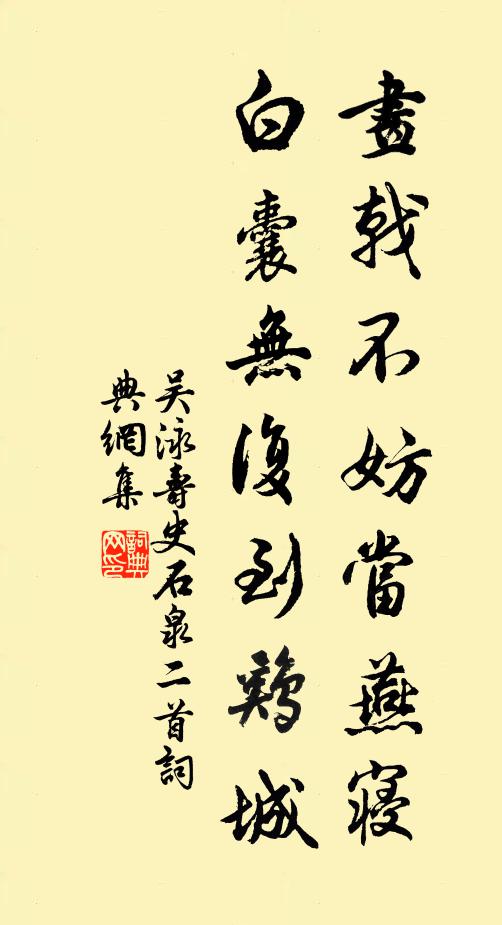 畫戟不妨當燕寢
白囊無復到鷄城
吴泳壽史石泉二首詞
典網集
詞典网印